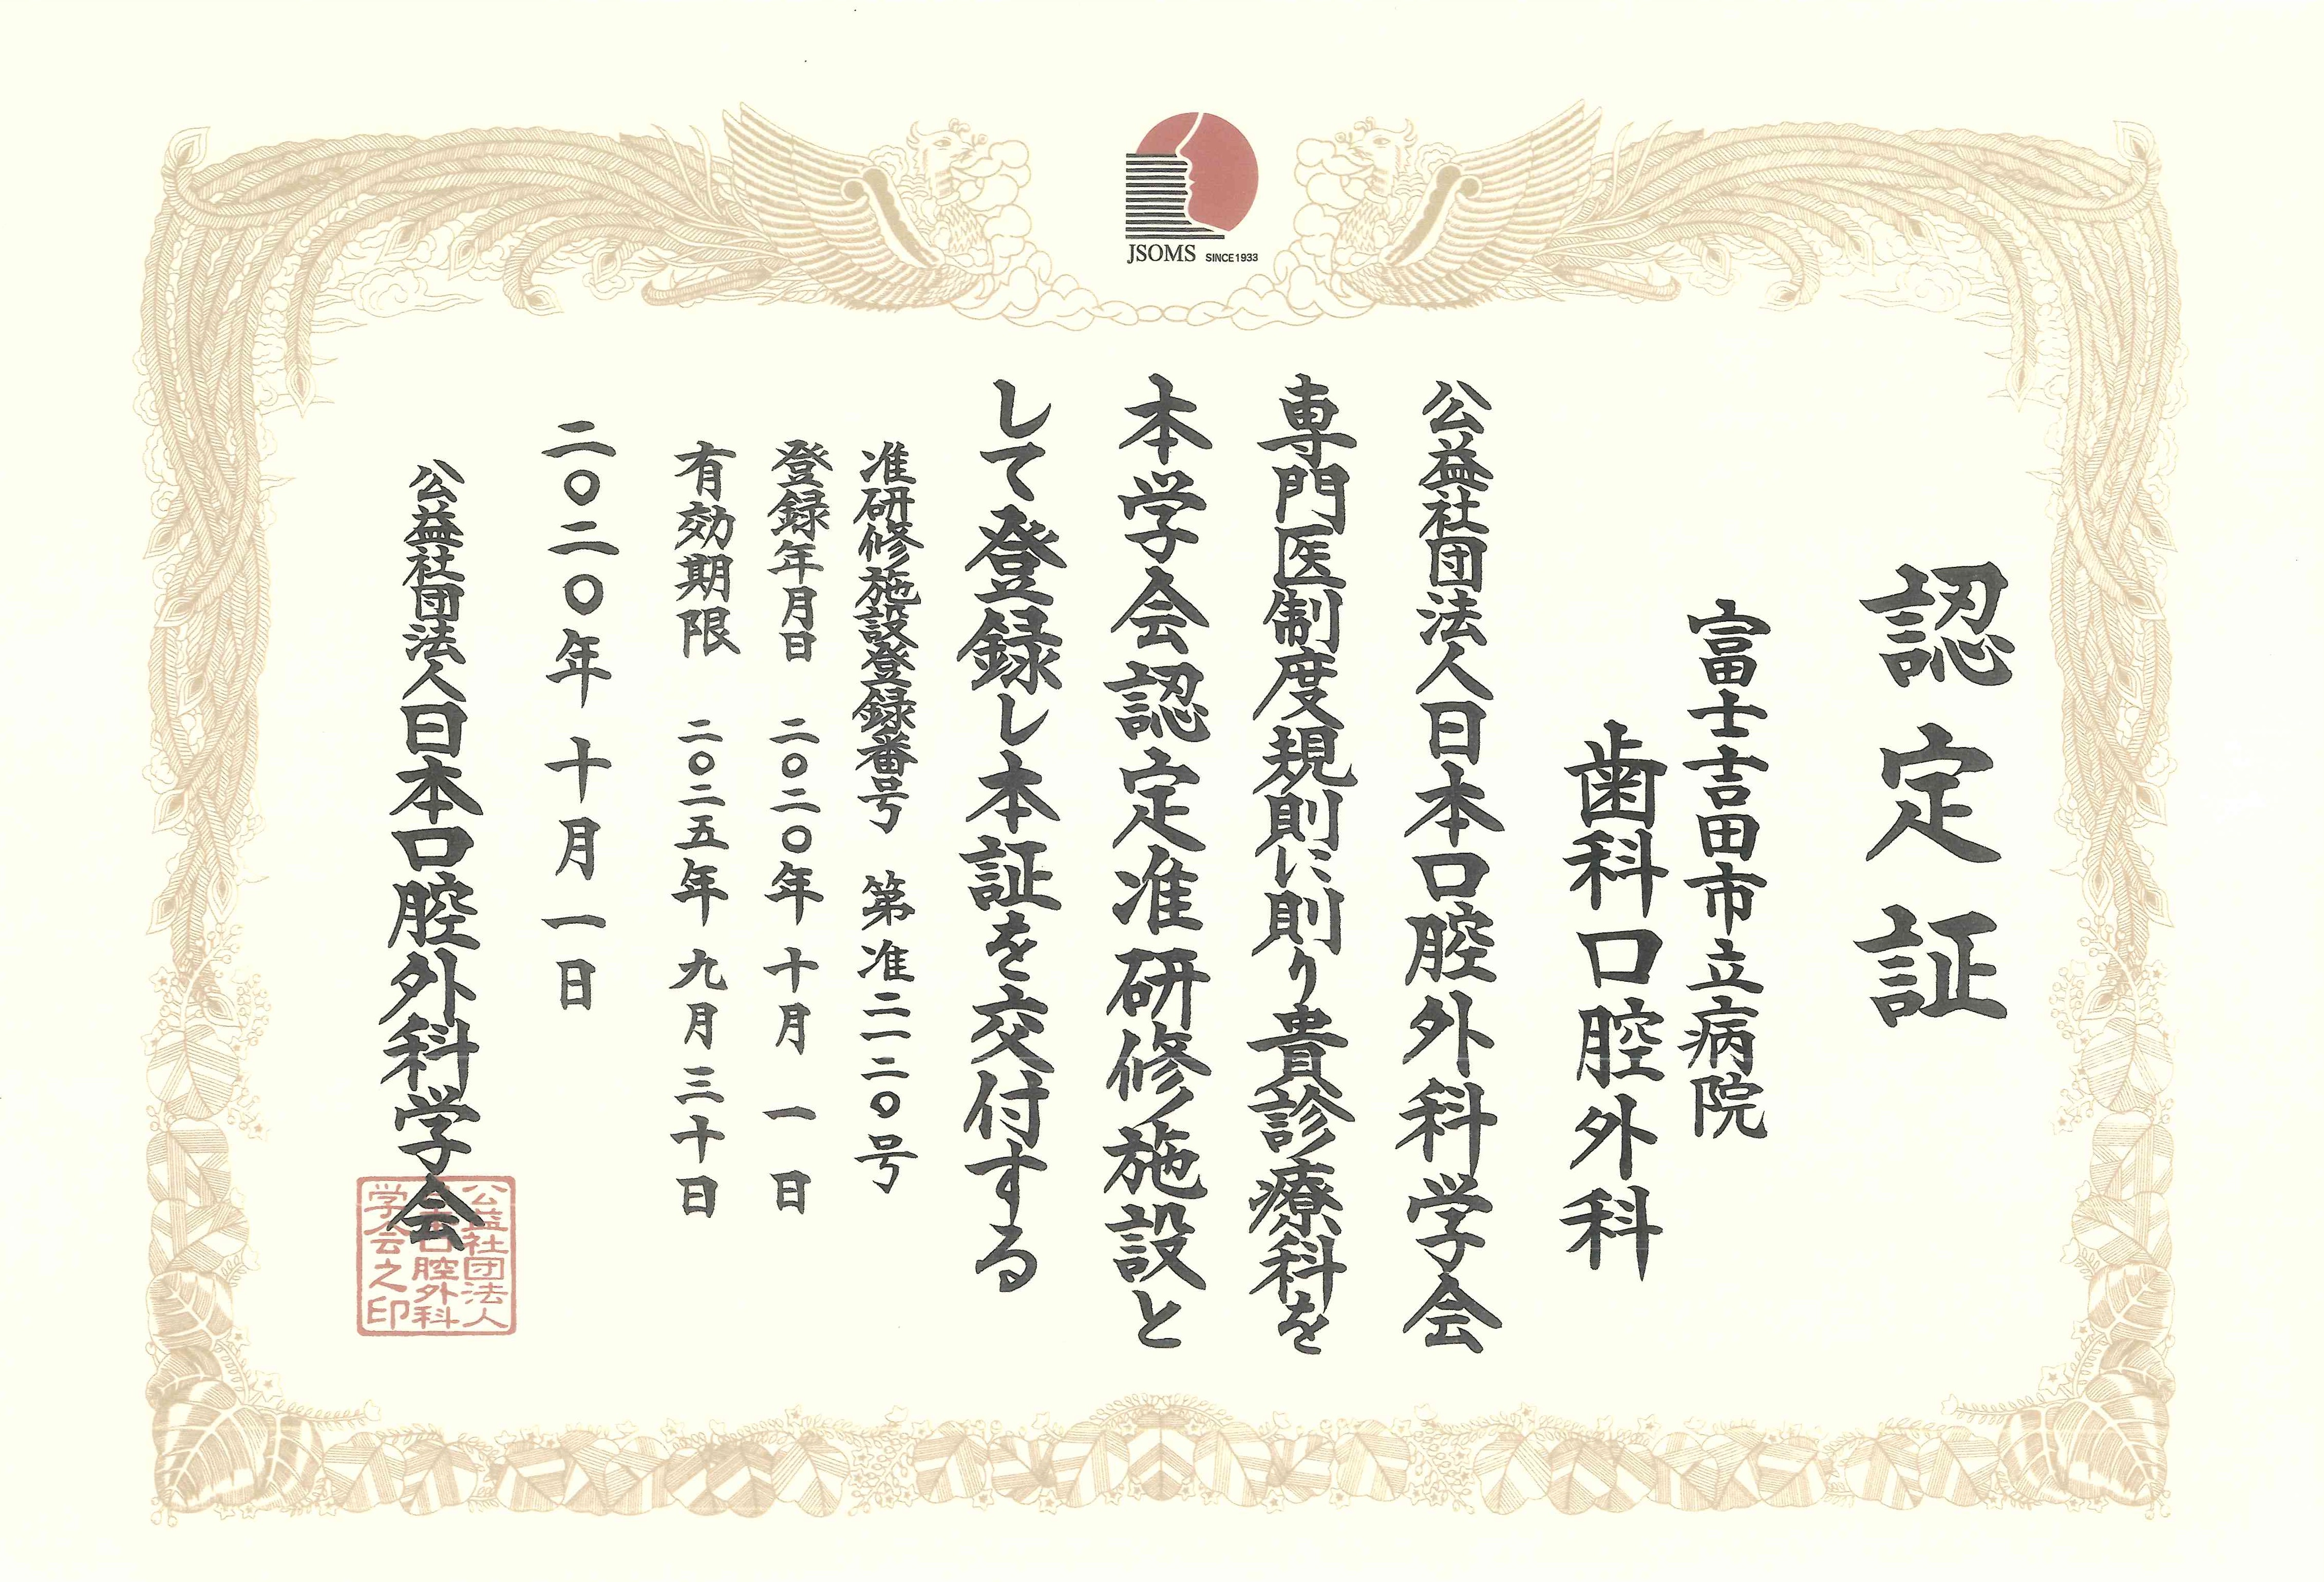 JSOMS SINCE 1933
認定証
富士吉田市立病院
歯科口腔外科
公益社団法人日本口腔外科学会
専門医制度規則に則り貴診療科を
本学会認定准研修施設と
して登録し本証を交付する
准研修施設登録番号 第准二一二〇号
登録年月日 二〇二〇年十月一日
有効期限 二〇二五年九月三十日
二〇二〇年十月一日
公益社団法人日本口腔外科学会
公益社団法人
日本口腔外科
学会之印